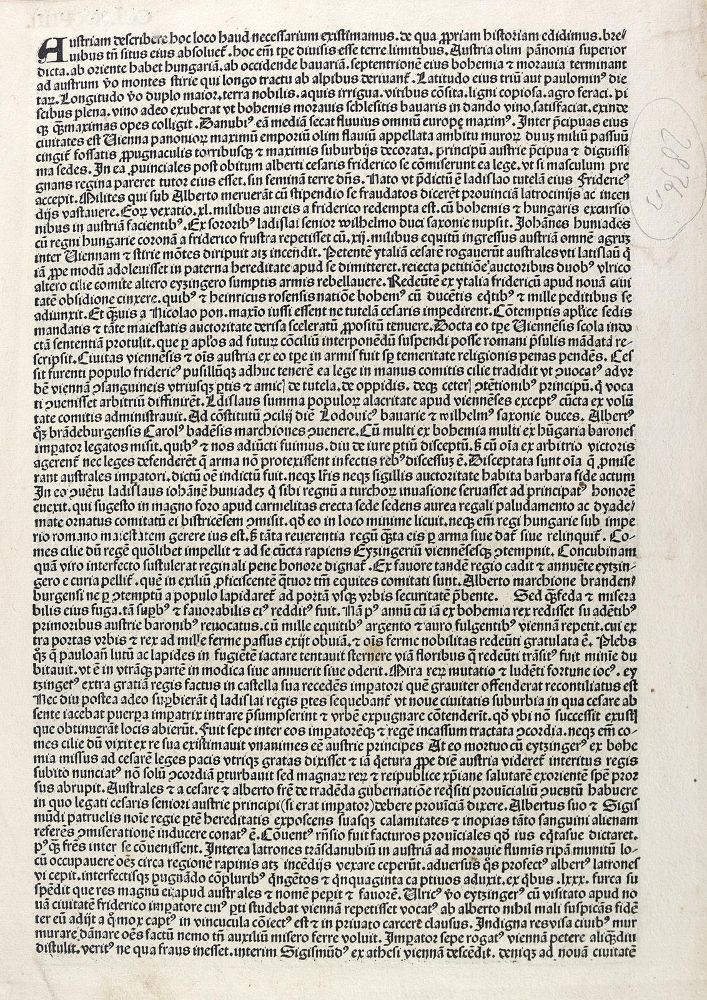 Austriam describere hoc loco haud necessarium existimamus. de qua ꝓpriam historiam edidimus. bre/
uibus tñ situs eius absoluet᷑. hoc em̄ tꝑe diuisis esse terre limitibus. Austria olim pānonia superior
dicta. ab oriente habet hungariā. ab occidende bauariā. septentrionē eius bohemia ⁊ morauia terminant
ad austrum ꝟo montes stirie qui longo tractu ab alpibus deriuant᷑. Latitudo eius triū aut paulominꝰ die
taꝝ. Longitudo ꝟo duplo maior. terra nobilis. aquis irrigua. vitibus cōsita. ligni copiosa. agro feraci. pi
scibus plena. vino adeo exuberat vt bohemis morauis schlesitis bauaris in dando vino, satisfaciat. exinde
qꝫ q̄ꝫmaximas opes colligit. Danubiꝰ eā mediā secat fluuius omniū europe maximꝰ. Inter p̄cipuas eius
ciuitates est Uienna panonioꝝ maximū emporiū olim flauiū appellata ambitu muroꝝ duūꝫ miliū passuū
cingit᷑ fossatis ꝓpugnaculis torribusqꝫ ⁊ maximis suburbijs decorata. principū austrie p̄cipua ⁊ dignissi
ma sedes. In ea ꝓuinciales post obitum alberti cesaris friderico se cōmiserunt ea lege. vt si masculum pre
gnans regina pareret tutor eius esset. sin feminā terre dn̄s. Nato vt p̄dictū ē ladislao tutelā eius Fridericꝰ
accepit. Milites qui sub Alberto meruerāt cū stipendio se fraudatos dicerēt prouinciā latrocinijs ac incen
dijs vastauere. Eoꝝ vexatio. xl. milibus aureis a friderico redempta est. cū bohemis ⁊ hungaris excursio
nibus in austriā facientibꝰ. Ex sororibꝰ ladislai senior wilhelmo duci saxonie nupsit. Iohānes huniades
cū regni hungarie coronā a friderico frustra repetisset cū. xij. milibus equitū ingressus austriā omnē agruꝫ
inter Uiennam ⁊ stirie mōtes diripuit aīs incendit. Petentē ytaliā cesarē rogauerūt australes vti latislaū q̄
iā ꝓpe modū adoleuisset in paterna hereditate apud se dimitteret. reiecta petitiōe auctoribus duobꝰ vlrico
altero cilie comite altero eyzingero sumptis armis rebellauere. Redeūtē ex ytalia fridericū apud nouā ciui
tatē obsidione cinxere. quibꝰ ⁊ heinricus rosensis natiōne bohemꝰ cū ducētis eq̄tibꝰ ⁊ mille peditibus se
adiunxit. Et q̄uis a Nicolao pon. maxīo iussi essent ne tutelā cesaris impedirent. Cōtemptis apl̄ice sedis
mandatis ⁊ tāte maiestatis auctoritate derisa sceleratū ꝓpositū tenuere. Docta eo tꝑe Uiennēsis scola indo
ctā sententiam protulit. que ꝑ apl̄os ad futuꝝ cōciliū interponēdū suspendi posse romani pn̄sulis mādata re-
scripsit. Ciuitas viennēsis ⁊ oīs austria ex eo tꝑe in armis fuit sꝑ temeritate religionis penas pendēs. Ces
sit furenti populo fridericꝰ pusillūqꝫ adhuc tenerē ea lege in manus comitis cilie tradidit vt ꝯuocatꝰ ad vr
bē viennā ꝯsanguineis vtriusqꝫ ꝑtis ⁊ amicꝭ de tutela. de oppidis. deqꝫ ceterꝭ ꝯtētionibꝰ principū. q̄ voca
ti ꝯuenisset arbitriū diffinirēt. Ldislaus summa populoꝝ alacritate apud viennēses exceptꝰ cūcta ex volū
tate comitis administrauit. Ad cōstitutū ꝯcilij diē Lodouicꝰ bauarie ⁊ wilhelmꝰ saxonie duces. Albertꝰ
q̄ꝫ brādeburgensis Carolꝰ badēsis marchiones ꝯuenere. Cū multi ex bohemia multi ex hūgaria barones
imꝑator legatos misit. quibꝰ ⁊ nos adiūcti fuimus. diu de iure ꝑtiū disceptū. sꝫ cū oīa ex arbitrio victoris
agerent᷑ nec leges defenderēt q̄ arma nō protexissent infectis rebꝰ discessuꝫ ē. Disceptata sunt oīa q̄ ꝓmise
rant australes imꝑatori. dictū oē indictū fuit. neqꝫ lr̄is neqꝫ sigillis auctoritate habita barbara fide actum
In eo ꝯuētu ladislaus iohānē huniadeꝫ q̄ sibi regnū a turchoꝝ inuasione seruasset ad principatꝰ honorē
euexit. qui sugesto in magno foro apud carmelitas erecta sede sedens aurea regali paludamento ac dyade/
mate ornatus comitatū ei bistricēsem ꝯmisit. qd̄ eo in loco minime licuit. neqꝫ em̄ regi hungarie sub impe
rio romano maiestatem gerere ius est. sꝫ tāta reuerentia regū q̄ꝫta eis ꝑ arma siue dat᷑ siue relinquit᷑. Co-
mes cilie dū regē quōlibet impellit ⁊ ad se cūcta rapiens Eyzingeriū viennēsesqꝫ ꝯtempnit. Concubinam
quā viro interfecto sustulerat reginali pene honore dignat᷑. Ex fauore tandē regio cadit ⁊ annuēte eytzin-
gero e curia pellit᷑. quē in exiliū ꝓficiscentē q̄tuor tm̄ equites comitati sunt. Alberto marchione branden/
burgensi ne ꝑ ꝯtemptū a populo lapidaret᷑ ad portā vsqꝫ vrbis securitatē p̄bente. Sed q̄ꝫfeda ⁊ misera
bilis eius fuga. tā suꝑbꝰ ⁊ fauorabilis eiꝰ redditꝰ fuit. Nā pꝰ annū cū iā ex bohemia rex redisset su adētibꝰ
primoribus austrie baronibꝰ reuocatus. cū mille equitibꝰ argento ⁊ auro fulgentibꝰ viennā repetit. cui ex
tra portas vrbis ⁊ rex ad mille ferme passus exijt obuiā. ⁊ oīs ferme nobilitas redeūti gratulata ē. Plebs
q̄ꝫ q̄ pauloan̄ lutū ac lapides in fugiētē iactare tentauit sternere viā floribus q̄ redeūti trāsitꝰ fuit minīe du
bitauit. vt ē in vtrāqꝫ partē in modica siue annuerit siue oderit. Mira reꝝ mutatio ⁊ ludēti fortune iocꝰ. ey
tzingerꝰ extra gratiā regis factus in castella sua recedēs imꝑatori quē grauiter offenderat reconciliatus est
Nec diu postea adeo suꝑbierāt q̄ ladislai regis ꝑtes sequebant᷑ vt noue ciuitatis suburbia in qua cesare ab
sente iacebat puerꝑa imꝑatrix intrare p̄sumpserint ⁊ vrbē expugnare cōtenderīt. qd̄ vbi nō successit exustꝭ
que obtinuerāt locis abierūt. Fuit sepe inter eos imꝑatorēqꝫ ⁊ regē incassum tractata ꝯcordia. neqꝫ em̄ co-
mes cilie dū vixit ex re sua existimauit vnanimes eē austrie principes At eo mortuo cū eytzingerꝰ ex bohe
mia missus ad cesarē leges pacis vtriqꝫ gratas dixisset ⁊ iā q̄etura ꝓpe diē austria videret᷑ interitus regis
subito nunciatꝰ nō solū ꝯcordiā ꝑturbauit sed magnaꝝ reꝝ ⁊ reipublice xp̄iane salutarē exorientē spē pror
sus abrupit. Australes ⁊ a cesare ⁊ alberto fr̄e de tradēda gubernatiōe req̄siti prouincialiū ꝯuentū habuere
in quo legati cesaris seniori austrie principi (si erat imꝑator) debere prouīciā dixere. Albertus suo ⁊ Sigis
mūdi patruelis noīe regie ꝑtē hereditatis exposcens suasqꝫ calamitates ⁊ inopias tāto sanguini alienam
referēs ꝯmiserationē inducere conatꝰ ē. Cōuent᷑ rn̄sio fuit facturos prouīciales qd̄ ius eq̄tasue dictaret.
pꝰq̄ꝫ fr̄es inter se cōuenissent. Interea latrones trāsdanubiū in austriā ad morauie flumēs ripā munitū lo-
cū occupauere oēs circa regionē rapinis atqꝫ incēdijs vexare ceperūt. aduersus q̄s profectꝰ albertꝰ latrones
vi cepit. interfectisqꝫ pugnādo cōpluribꝰ q̄ngētos ⁊ q̄nquaginta captiuos aduxit. ex q̄bus. lxxx. furca su
spēdit que res magnū ei apud australes ⁊ nomē peꝑit ⁊ fauorē. Ulricꝰ ꝟo eytzingerꝰ cū visitato apud no
uā ciuitatē friderico imꝑatore cuiꝰ ꝑti studebat viennā repetisset vocatꝰ ab alberto nihil mali suspicās fidēt
ter eū adijt a q̄ mox captꝰ in vincula cōiectꝰ est ⁊ in priuato carcere clausus. Indigna res visa ciuibꝰ mur
murare dānare oēs factū nemo tn̄ auxiliū misero ferre voluit. Imꝑator sepe rogatꝰ viennā petere aliq̄ꝫdiu
distulit. veritꝰ ne qua fraus inesset. interim Sigismūdꝰ ex athesi viennā descēdit. deniqꝫ ad nouā ciuitatē